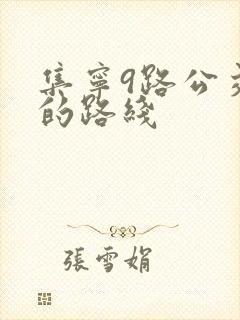 集寧9路公交
的路綫
張雪娟